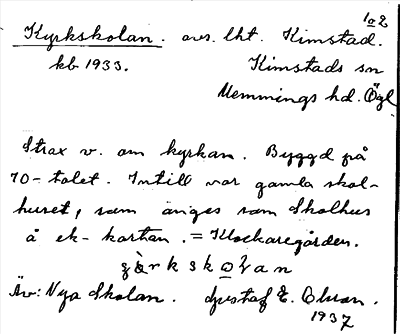 102
Kyrkskolan. avs. lht. Kimstad.
kb 1933. Kimstads sn
Memmings hd. Ögl
Strax v. om kyrkan. Byggd på
70-talet. Intill var gamla skol-
huset, som anges som Skolhus
å ek-kartan. = Klockaregården.
Äv: Nya Skolan. Gustaf E. Olsson.
1937